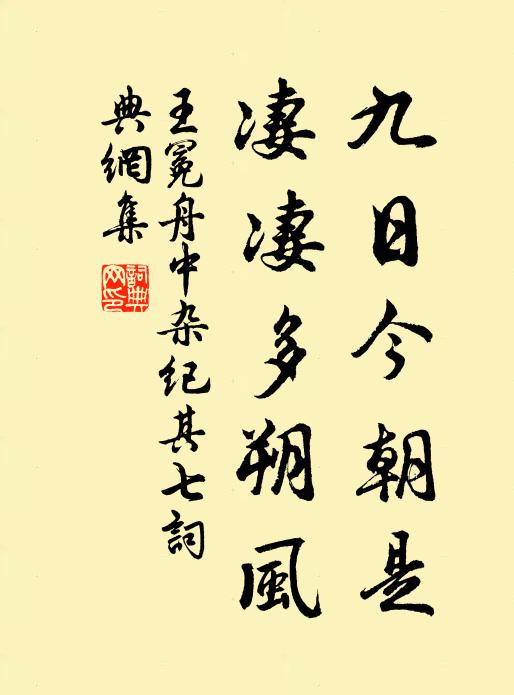 九日今朝是
凄凄多朔風
王冕舟中杂纪其七詞
典網集
詞典
网印